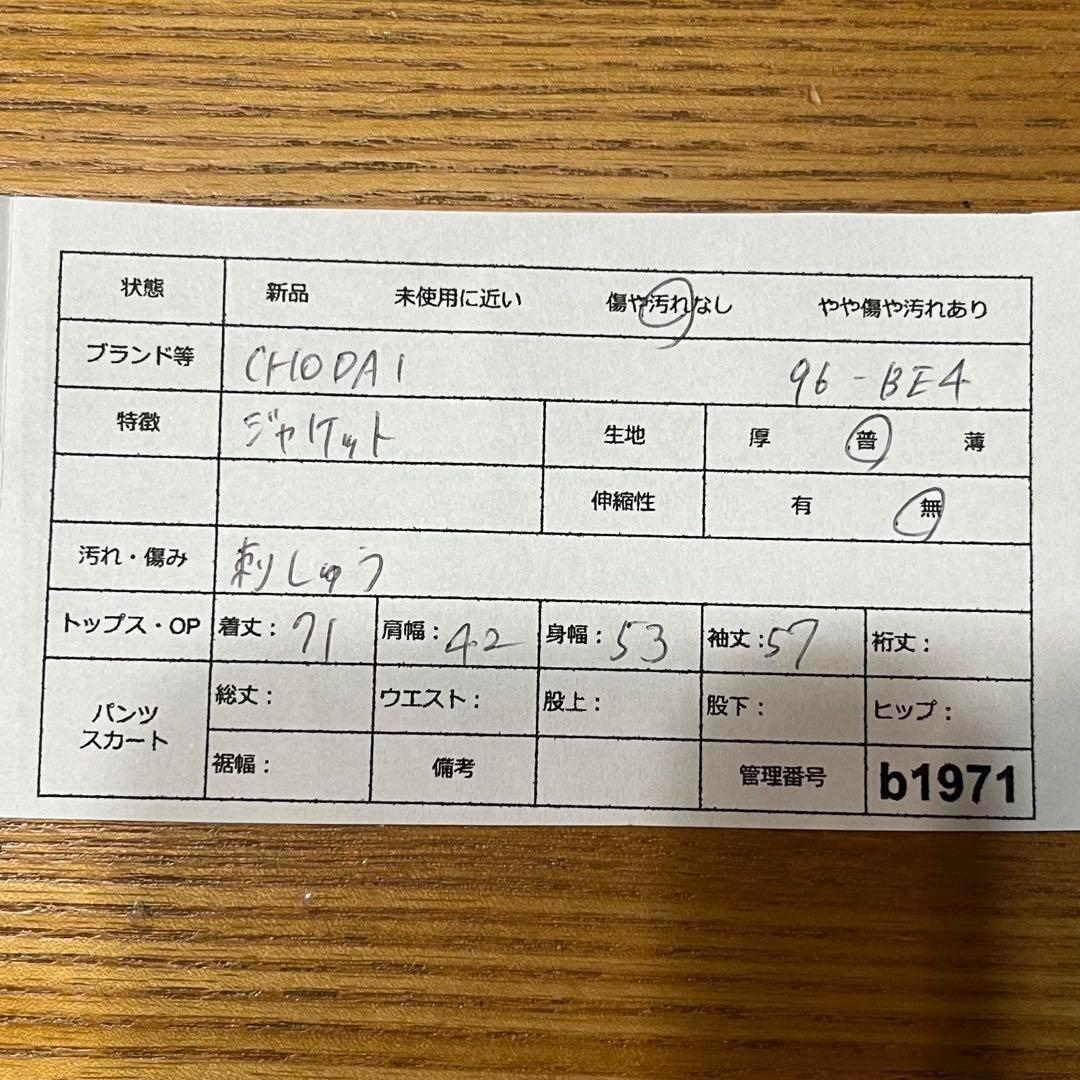 状態 新品 未使用に近い 傷や汚れなし やや傷や汚れあり
ブランド等 CHODAI 96-BE4
特徴 ジャケット 生地 厚 普 薄
伸縮性 有 無
汚れ・傷み 刺しゅう
トップス・OP 着丈：71 肩幅：42 身幅：53 袖丈：57 裄丈：
パンツ スカート 総丈： ウエスト： 股上： 股下： ヒップ：
裾幅： 備考 管理番号 b1971